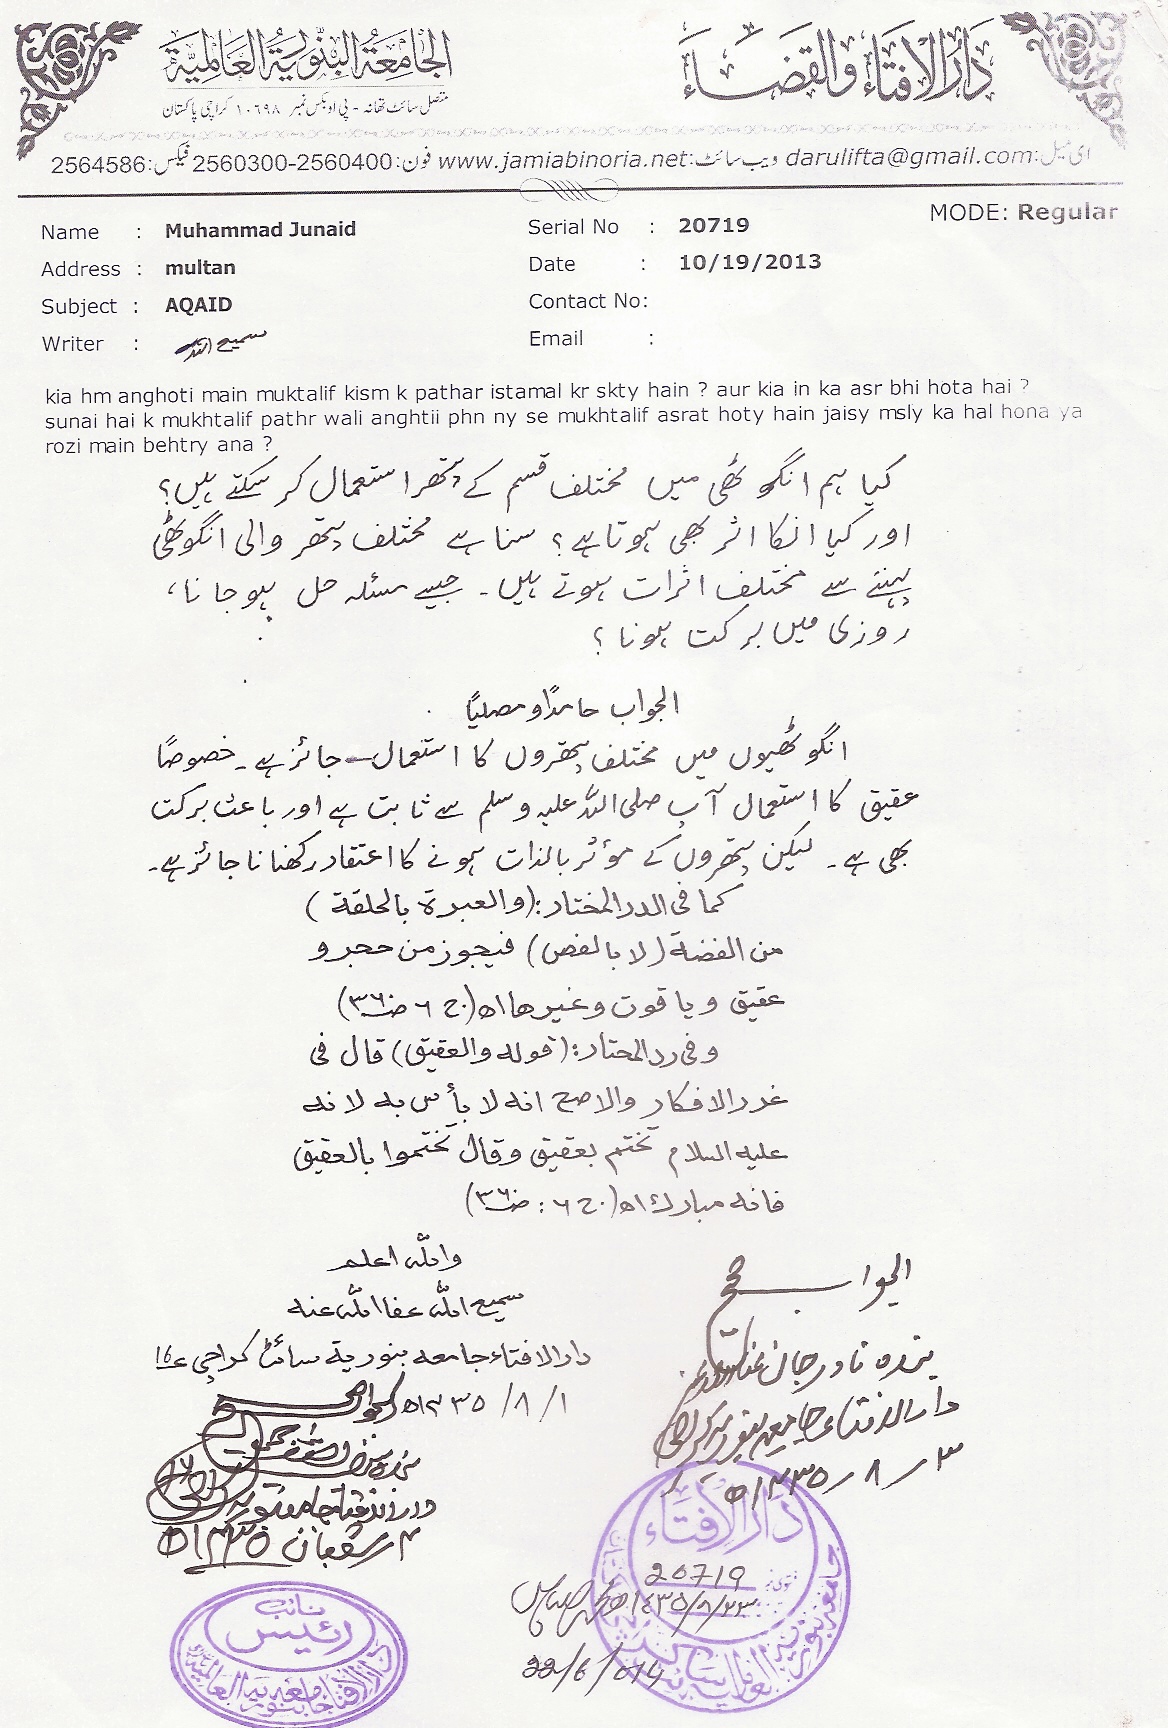 دارُ الافتاء والقضاء
الجامعۃ البنوریۃ العالمیۃ
متصل سائٹ تھانہ - پی او بکس نمبر ۱۰۶۹۸ کراچی پاکستان
ای میل:darulifta@gmail.com ویب سائٹ:www.jamiabinoria.net فون:2560300-2560400 فیکس:2564586
MODE: Regular
Name : Muhammad Junaid Serial No : 20719
Address : multan Date : 10/19/2013
Subject : AQAID Contact No:
Writer : سمیع اللہ Email :
kia hm anghoti main muktalif kism k pathar istamal kr skty hain ? aur kia in ka asr bhi hota hai ?
sunai hai k mukhtalif pathr wali anghtii phn ny se mukhtalif asrat hoty hain jaisy msly ka hal hona ya
rozi main behtry ana ?
کیا ہم انگوٹھی میں مختلف قسم کے پتھر استعمال کر سکتے ہیں؟
اور کیا انکا اثر بھی ہوتا ہے؟ سنا ہے مختلف پتھر والی انگوٹھی
پہننے سے مختلف اثرات ہوتے ہیں۔ جیسے مسئلہ حل ہو جانا،
روزی میں برکت ہونا؟
الجواب حامدًا ومصلیًا
انگوٹھیوں میں مختلف پتھروں کا استعمال جائز ہے۔ خصوصًا
عقیق کا استعمال آپ صلی اللہ علیہ وسلم سے ثابت ہے اور باعث برکت
بھی ہے۔ لیکن پتھروں کے مؤثر بالذات ہونے کا اعتقاد رکھنا ناجائز ہے۔
کما فی الدر المختار: (والعبرة بالحلقة)
من الفضة (لا بالفص) فیجوز من حجر و
عقیق ویاقوت وغیرها اھ (ج ۶ ص ۳۶۰)
وفی رد المحتار: (قوله والعقیق) قال فی
غرر الافکار والاصح انه لا بأس به لانه
علیه السلام تختم بعقیق وقال تختموا بالعقیق
فانه مبارك اھ (ج ۶: ص ۳۶۰)
واللہ اعلم
سمیع اللہ عفا اللہ عنه
دارالافتاء جامعه بنوریة سائٹ کراچی ۱۶
۱/۸/۱۴۳۵ھ
الجواب صحیح
بندہ نادر جان عفا اللہ عنہ
دارالافتاء جامعہ بنوریہ کراچی
۳-۸-۱۴۳۵ھ
الجواب صحیح
۴ شعبان ۱۴۳۵ھ
دار الافتاء
فتوی نمبر 20719
۲۳/۸/۱۴۳۵ھ
22/6/014
نائب
رئیس
دار الافتاء جامعه بنوریه العالمیة